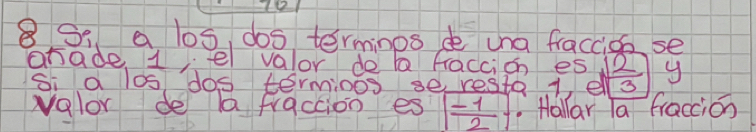 8 Si a los dos términos de una fracción se
añade 1, el valor de la fracción es 2/3 y
si a los dos términos se resta 1, el
valor de la fracción es -1/2. Hallar la fracción